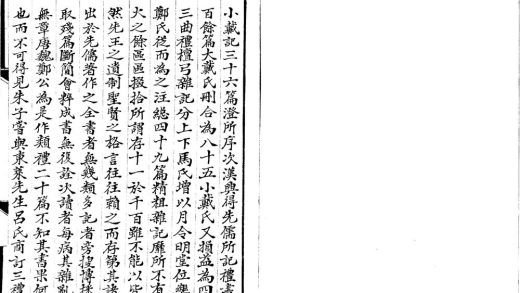 小戴記三十六篇澄所序次漢興得先儒所記禮書
百餘篇大戴氏刪合為八十五小戴氏又損益為四
三曲禮檀弓雜記分上下馬氏增以月令明堂位樂
鄭氏從而為之注總四十九篇精粗雜記靡所不有
火之餘區區掇拾所謂存十一於千百雖不能以皆
然先王之遺制聖賢之格言往往賴之而存第其諸
出於先儒著作之全書者無幾類多記者旁搜博採
取殘篇斷簡會稡成書無復詮次讀者每病其雜亂
無章唐魏鄭公為是作類禮二十篇不知其書果何
也而不可得見朱子嘗與東萊先生呂氏商訂三禮